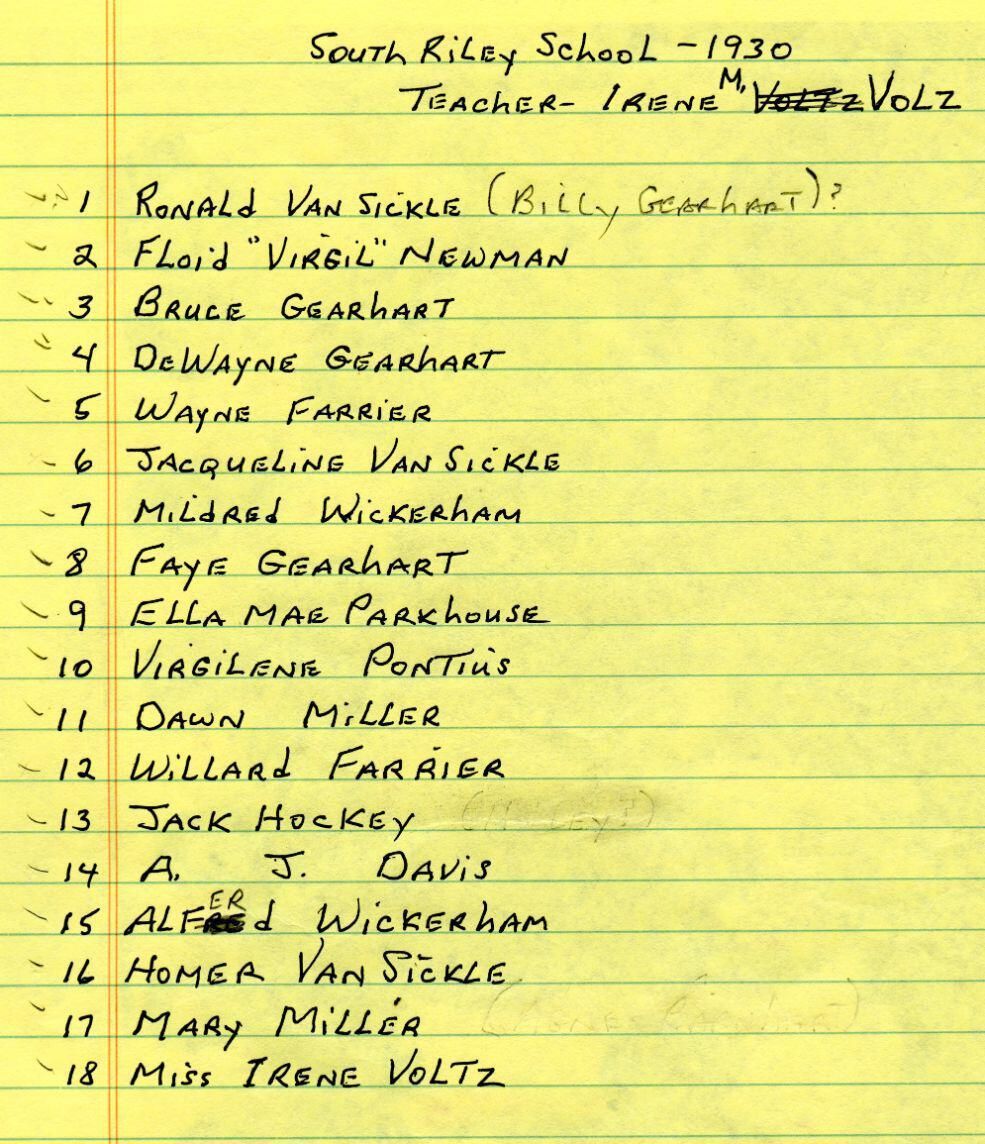 South Riley School - 1930
Teacher- Irene M. Voltz Volz
1 Ronald Van Sickle (Billy Gearhart)?
2 Floid "Virgil" Newman
3 Bruce Gearhart
4 DeWayne Gearhart
5 Wayne Farrier
6 Jacqueline Van Sickle
7 Mildred Wickerham
8 Faye Gearhart
9 Ella Mae Parkhouse
10 Virgilene Pontius
11 Dawn Miller
12 Willard Farrier
13 Jack Hockey
14 A. J. Davis
15 Alferd Wickerham
16 Homer Van Sickle
17 Mary Miller
18 Miss Irene Voltz